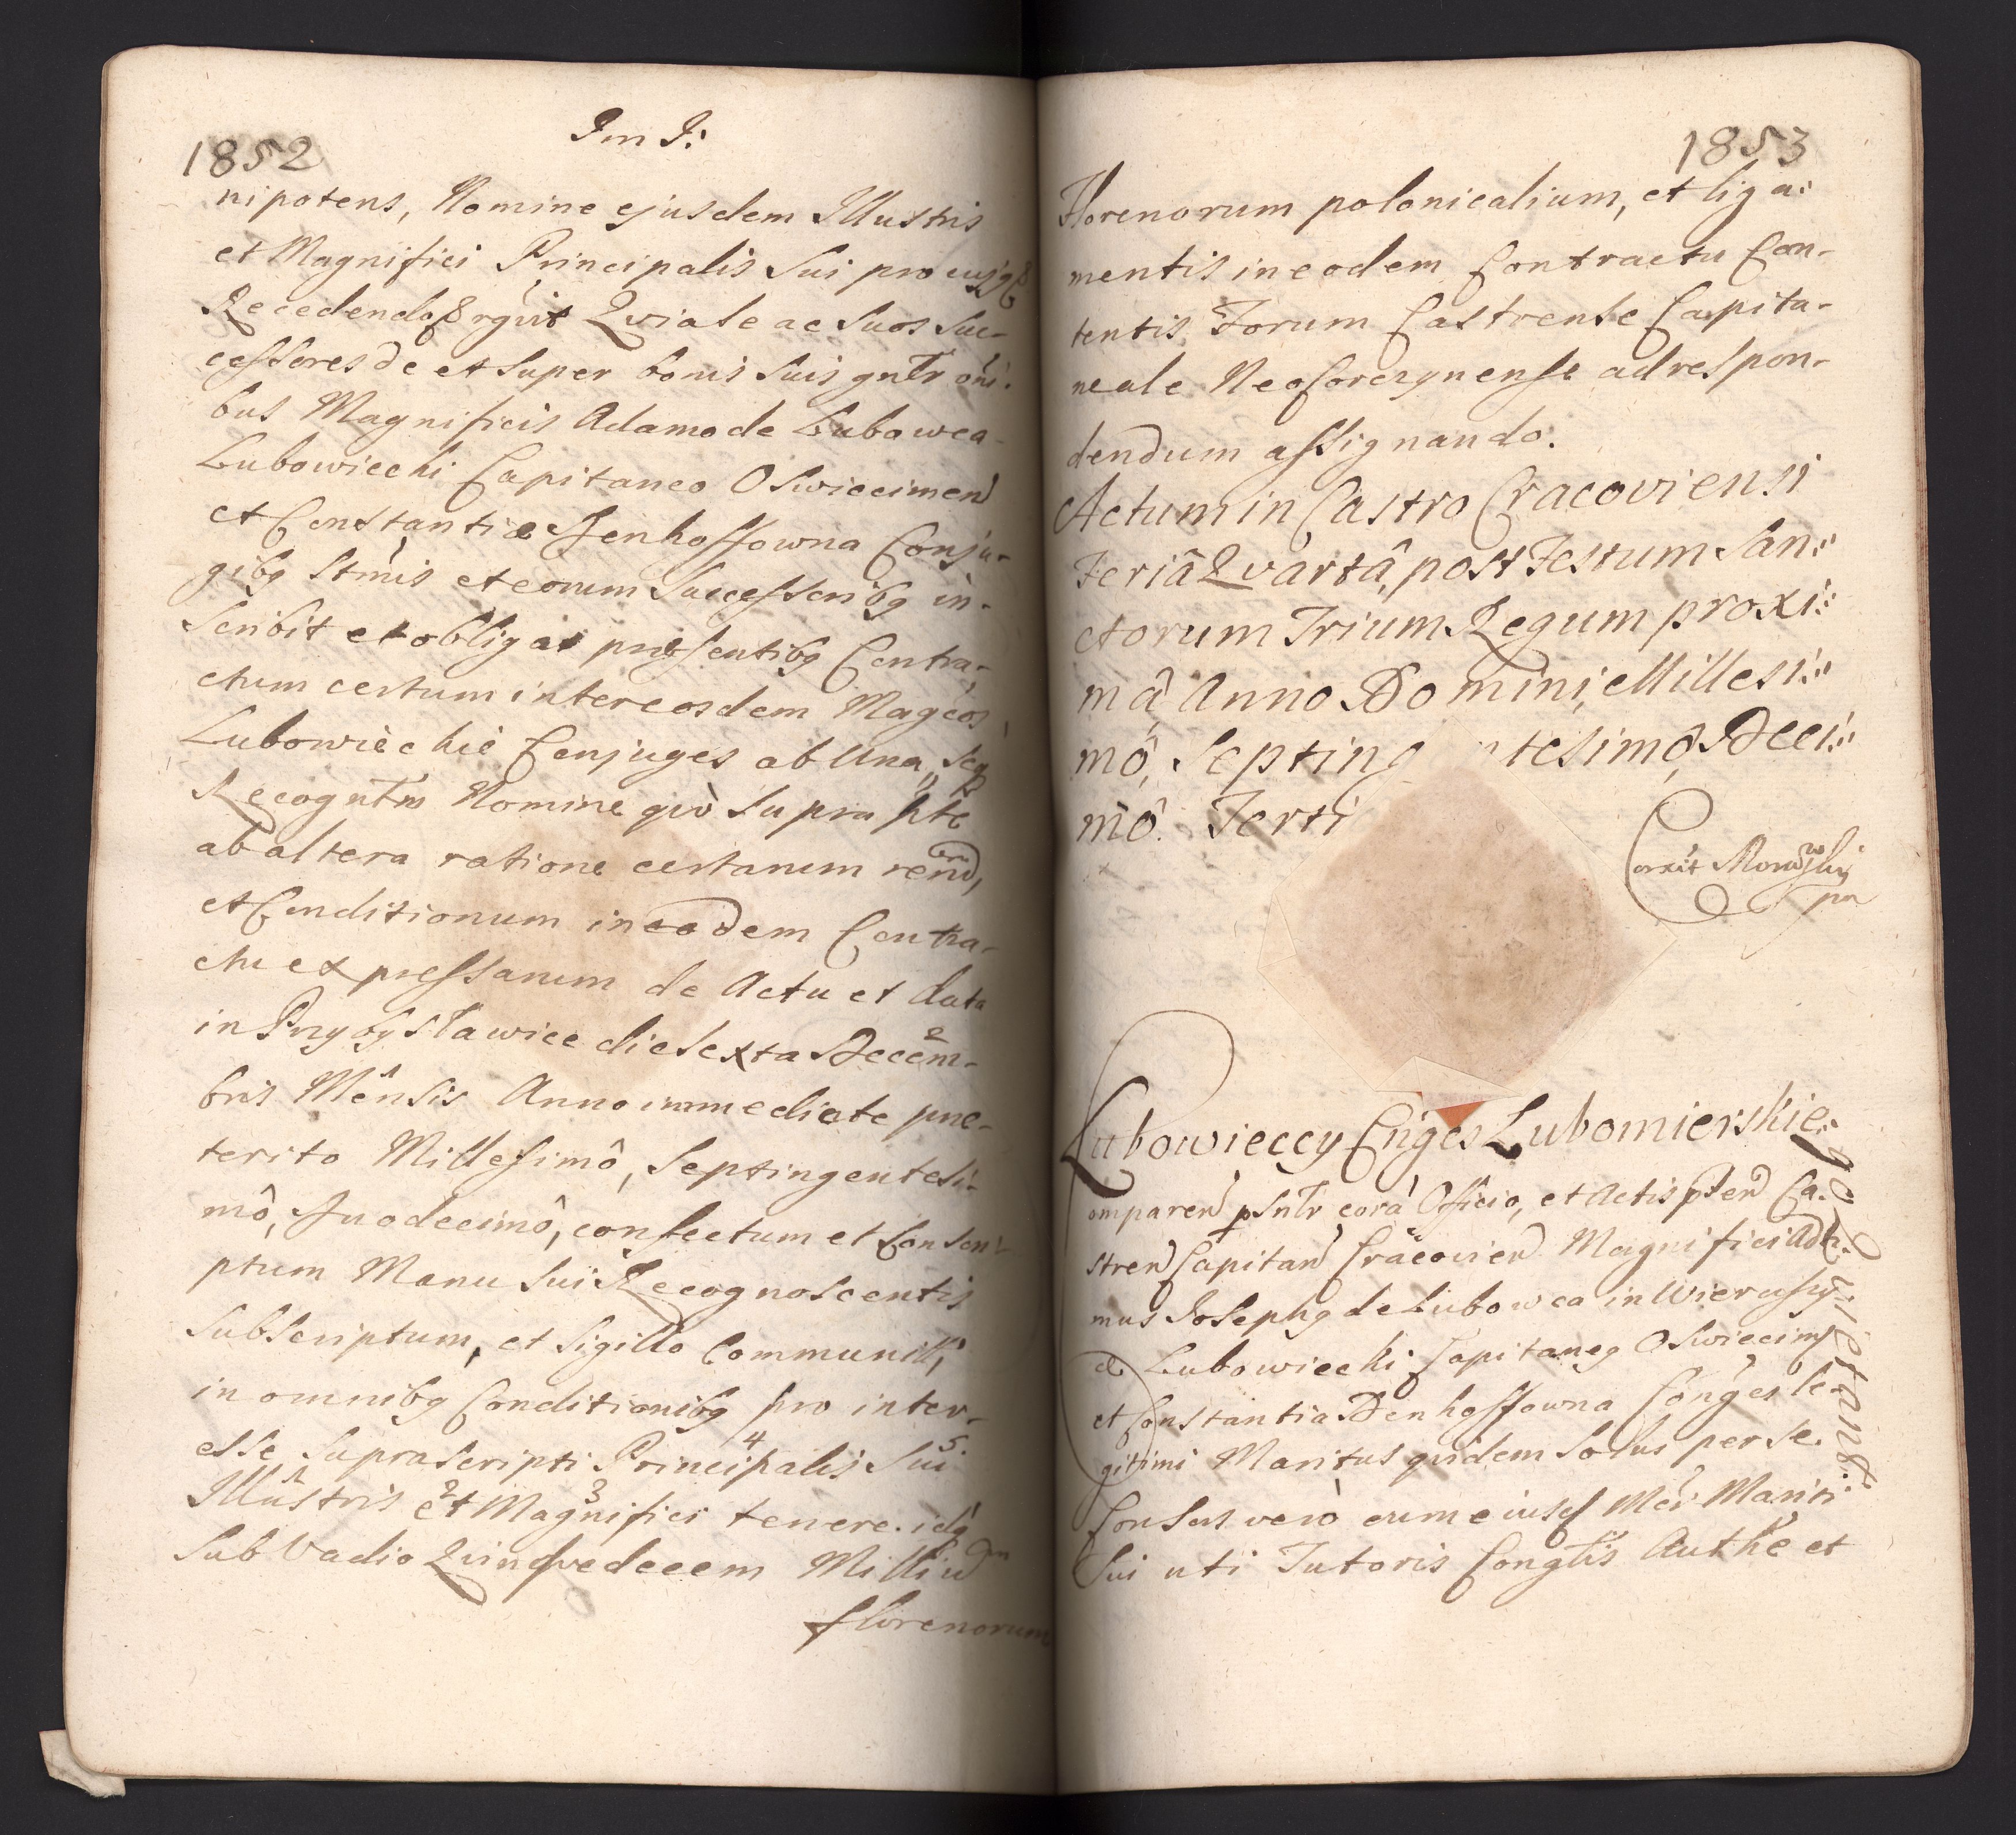 1852
Im I:
nipotens, Nomine ejusdem Illustris
et Magnifici Principalis Sui pro
Recedendo Qvia se ac suos suc-
cessores de et super bonis suis gnlr oni-
bus Magnificis Adamo de Lubowca
Lubowiecki Capitaneo Oswiecimen
et Constantiæ Denhoffowna Conju-
gibg Stmis et eorum Successoribg in-
scribit et obligat præsentibg Contra-
ctum certum inter eosdem Magcos
Lubowieckie Conjuges ab Una, seq
Recogntm Nomine qvo supra pte
ab altera ratione certarum rerum,
et Conditionum in eodem Contra-
ctu expressarum de Actu et data
in Przybysławice die sexta Decem-
bris Mênsis Anno immediate præ-
terito Millesimô, Septingentesi-
mô, Duodecimô, confectum et Conscri-
ptum Manu sui Recognoscentis
subscriptum, et sigillo Communitt,
in omnibg Conditionibg pro inter-
esse suprascripti Principalis sui
Illustris et Magnifici tenere. idq
sub Vadio Qvindvedecem Milliu
florenorum
1853
Florenorum polonicalium, et liga-
mentis in eodem Contractu Con-
tentis Forum Castrense Capita-
neale Neoforczynense ad respon-
dendum assignando.
Actum in Castro Cracoviensi
Feriâ Qvartâ, post Festum San-
ctorum Trium Regum proxi-
mâ, Anno Domini, Millesi-
mô, Septing ntesimô, Deci-
mô. Terti
Corxit
pn
Lubowieccy Cñges Lubomierskie-
go qvietant
Comparen psntr corà Officio, et Actis pten Ca-
stren Capitan Cracovien Magnifici Ada-
mus Josephg de Lubowca in Wierussy-
ce Lubowiecki Capitaneg Oswiecimen
et Constantia Denhoffowna Conges le-
gitimi Maritus qvidem solus per se.
Consors verò cum eiusd Mci Mariti
Sui uti Tutoris Congtis Authe et